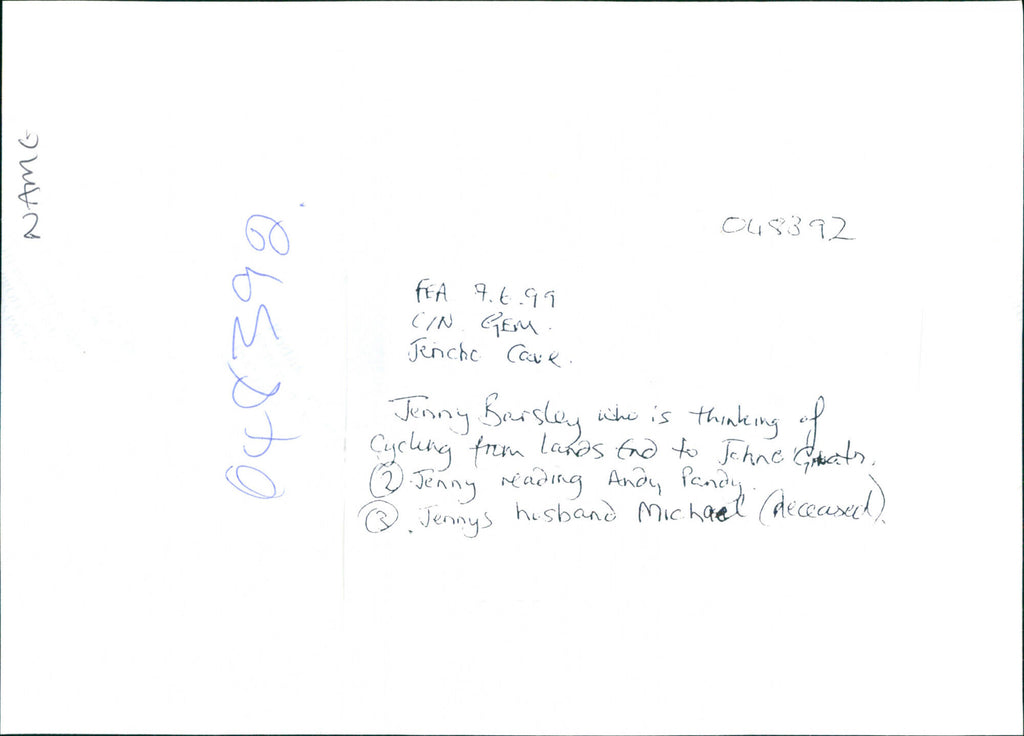 NAME
048392.
048392
FEA 9.6.99
C/N GEM.
Jericho Cave.
Jenny Barsley who is thinking of
Cycling from Lands End to Johno Groats.
② Jenny reading Andy Pandy.
③ Jennys husband Michael (deceased).